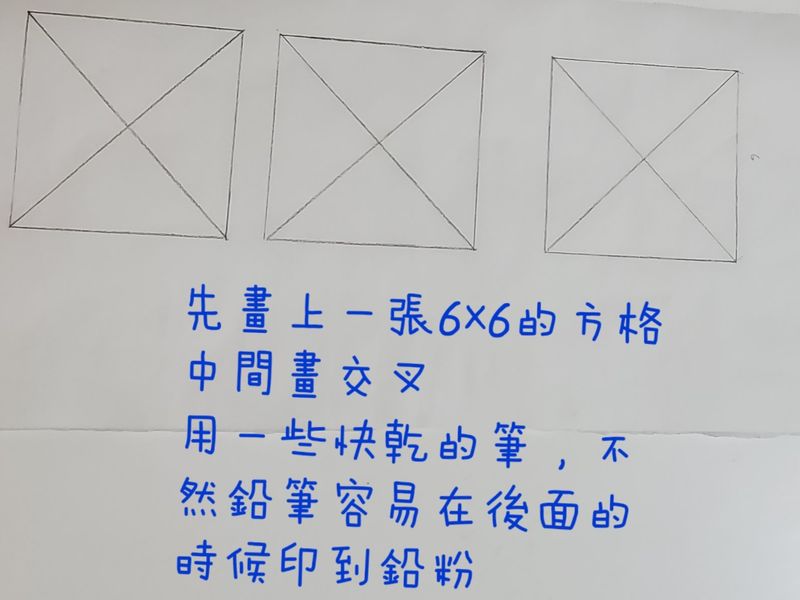 先畫上一張6×6的方格
中間畫交叉
用一些快乾的筆，不
然鉛筆容易在後面的
時候印到鉛粉